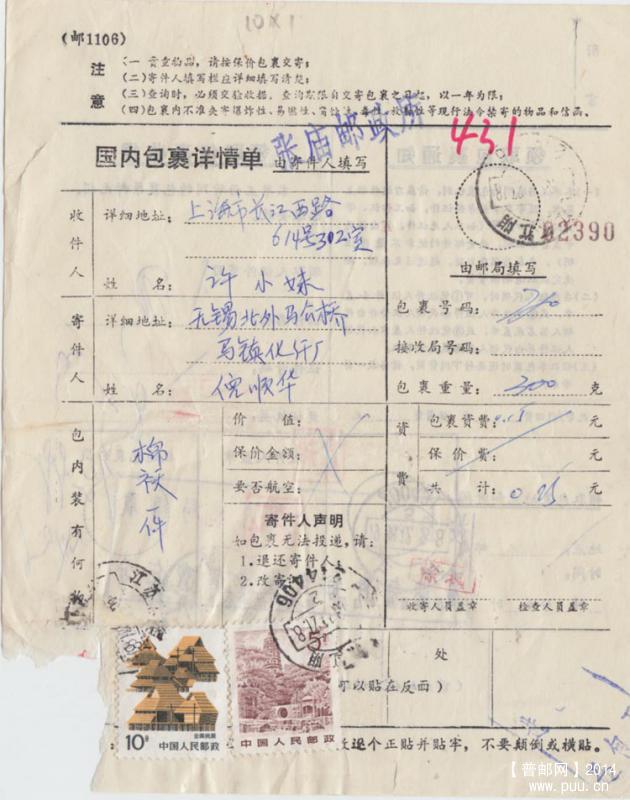 10×1
(邮1106)
注意
(一)贵重物品,请按保价包裹交寄;
(二)寄件人填写栏应详细填写清楚;
(三)查询时,必须交验收据。查询期限自交寄包裹之日起,以一年为限;
(四)包裹内不准夹寄爆炸性、易燃性、腐蚀性、毒性、放射性等现行法令禁寄的物品和信函。
张庙邮政局
431
国内包裹详情单
由寄件人填写
02390
由邮局填写
收件人
详细地址:上海市长江西路
614号302室
姓名:许小妹
寄件人
详细地址:无锡北外马公桥
马镇化纤厂
姓名:倪顺华
包裹号码:
接收局号码:
包裹重量:200克
包内装有何物
棉袄一件
价值:
保价金额:
要否航空:
资费
包裹资费:0.15元
保价费:元
共计:0.25元
寄件人声明
如包裹无法投递,请:
1.退还寄件人
2.改寄
收寄人员盖章
检查人员盖章
江阴
江苏
214406
处
可以贴在反面)
逐个正贴并贴牢,不要颠倒或横贴。
10分
中国人民邮政
中国人民邮政
【普邮网】2014
www.puu.cn